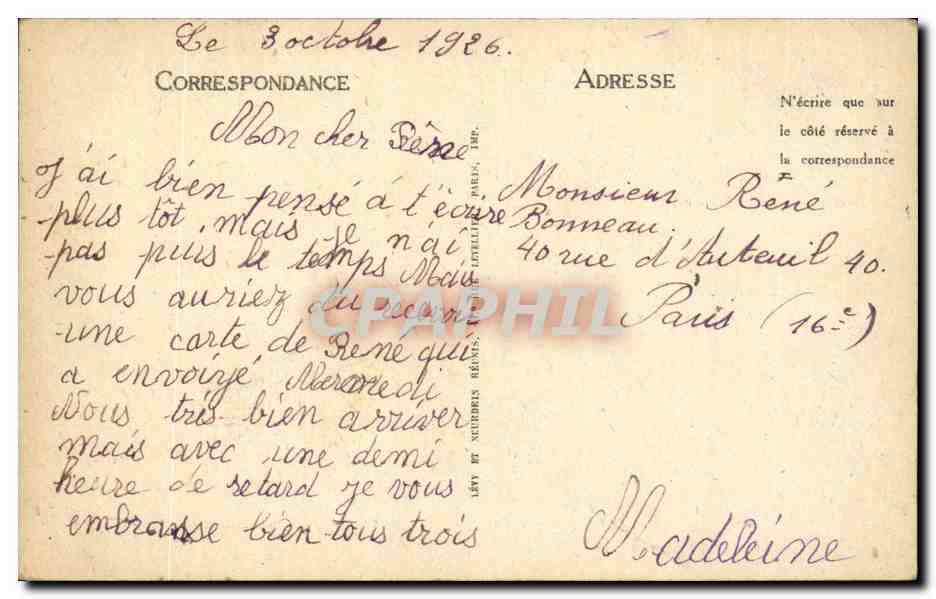 Le 3 octobre 1926.
CORRESPONDANCE
ADRESSE
N'écrire que sur
le côté réservé à
la correspondance
Mon cher
J'ai bien pensé á t'écrire
plus tôt, mais je n'ai
pas puis le temps Mais
vous auriez du recevoir
une carte de René qui
a envoiyé Mercredi
Nous très bien arriver
mais avec une demi
heure de retard je vous
embrasse bien tous trois
Monsieur René
Bonneau.
40 rue d'Auteuil 40.
Paris (16e)
Madeleine
LÉVY ET NEURDEIN RÉUNIS, LETELLIER, PARIS, IMP.
CPAPHIL